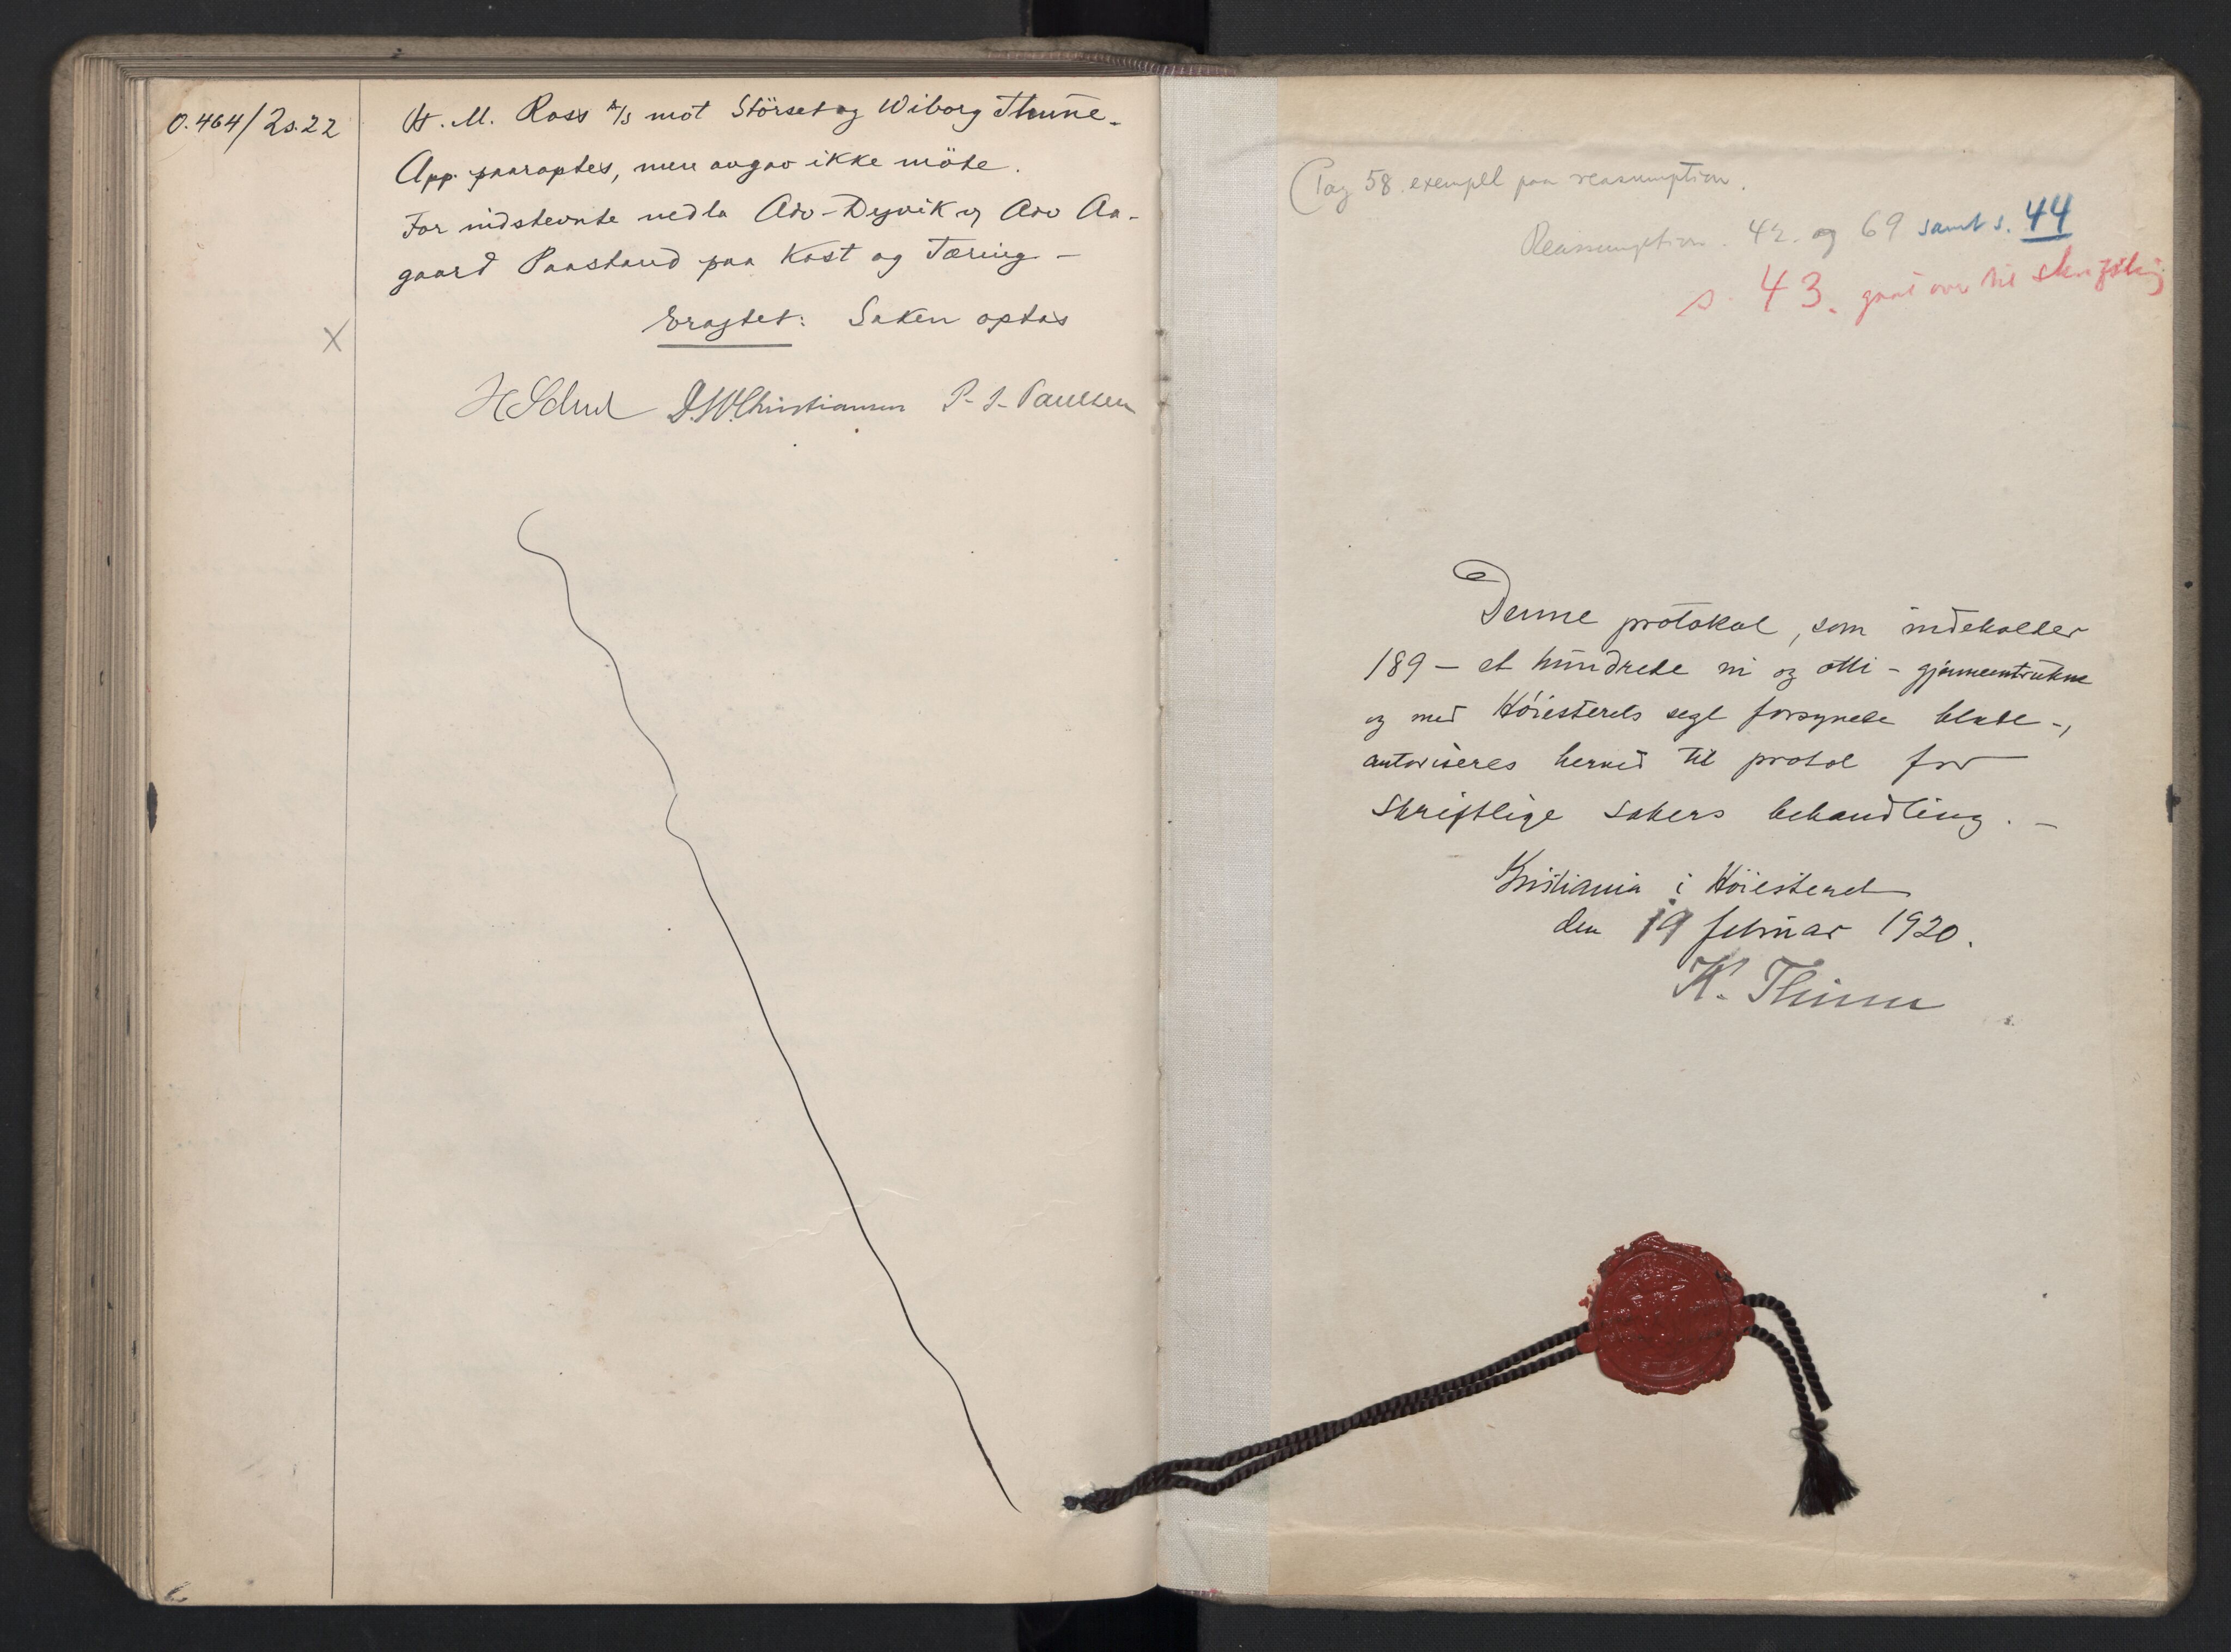 O.464/2s.22
H. M. Ross A/S mot Störset og Wiborg Thune.
App. paaroptes, men avgav ikke möte.
For indstevnte nedla Adv. Dyvik og Adv Aa-
gaard Paastand paa Kost og Tæring –
Eragtet: Saken optas
X
D.W.Christiansen P. I. Paulsen
(Pag 58. exempel paa reassumption.
Reassumption. 42. og 69 samt s. 44
s. 43. gaat over til skriftlig
Denne protokol, som indeholder
189 – et hundrede ni og otti – gjennemtrukne
og med Höiesterets segl forsynede blade –,
autoriseres herved til protol for
skriftlige sakers behandling. –
Kristiania i Höiesteret
den 19 februar 1920.
K. Thinn